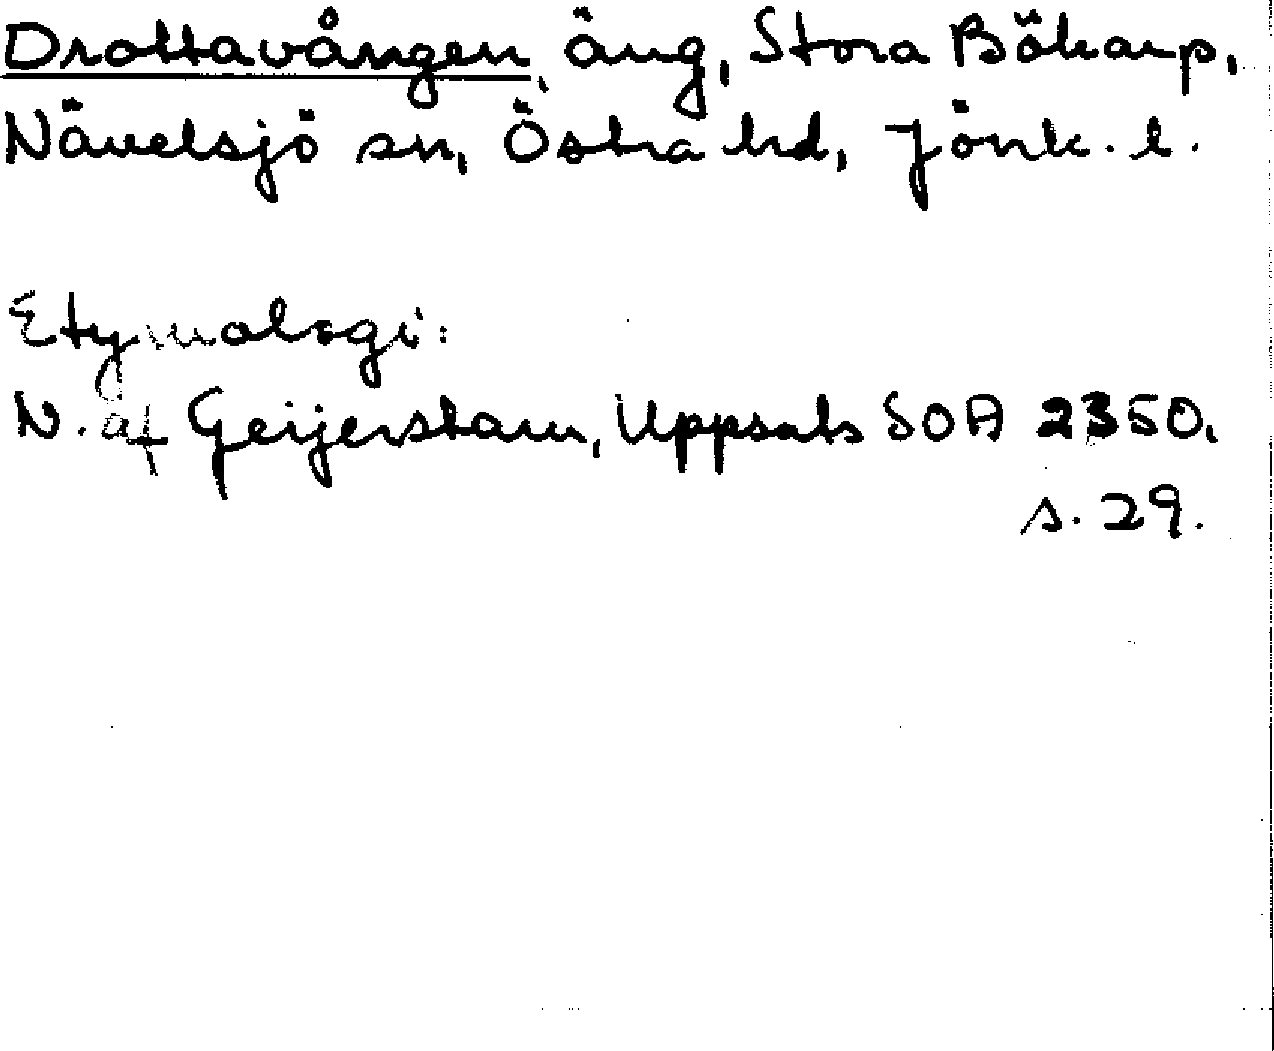 Drottavången, äng, Stora Bökarp,
Nävelsjö sn, Östra hd, Jönk. l.
Etymologi:
N. af Geijerstam, Uppsats SOA 2350,
s. 29.